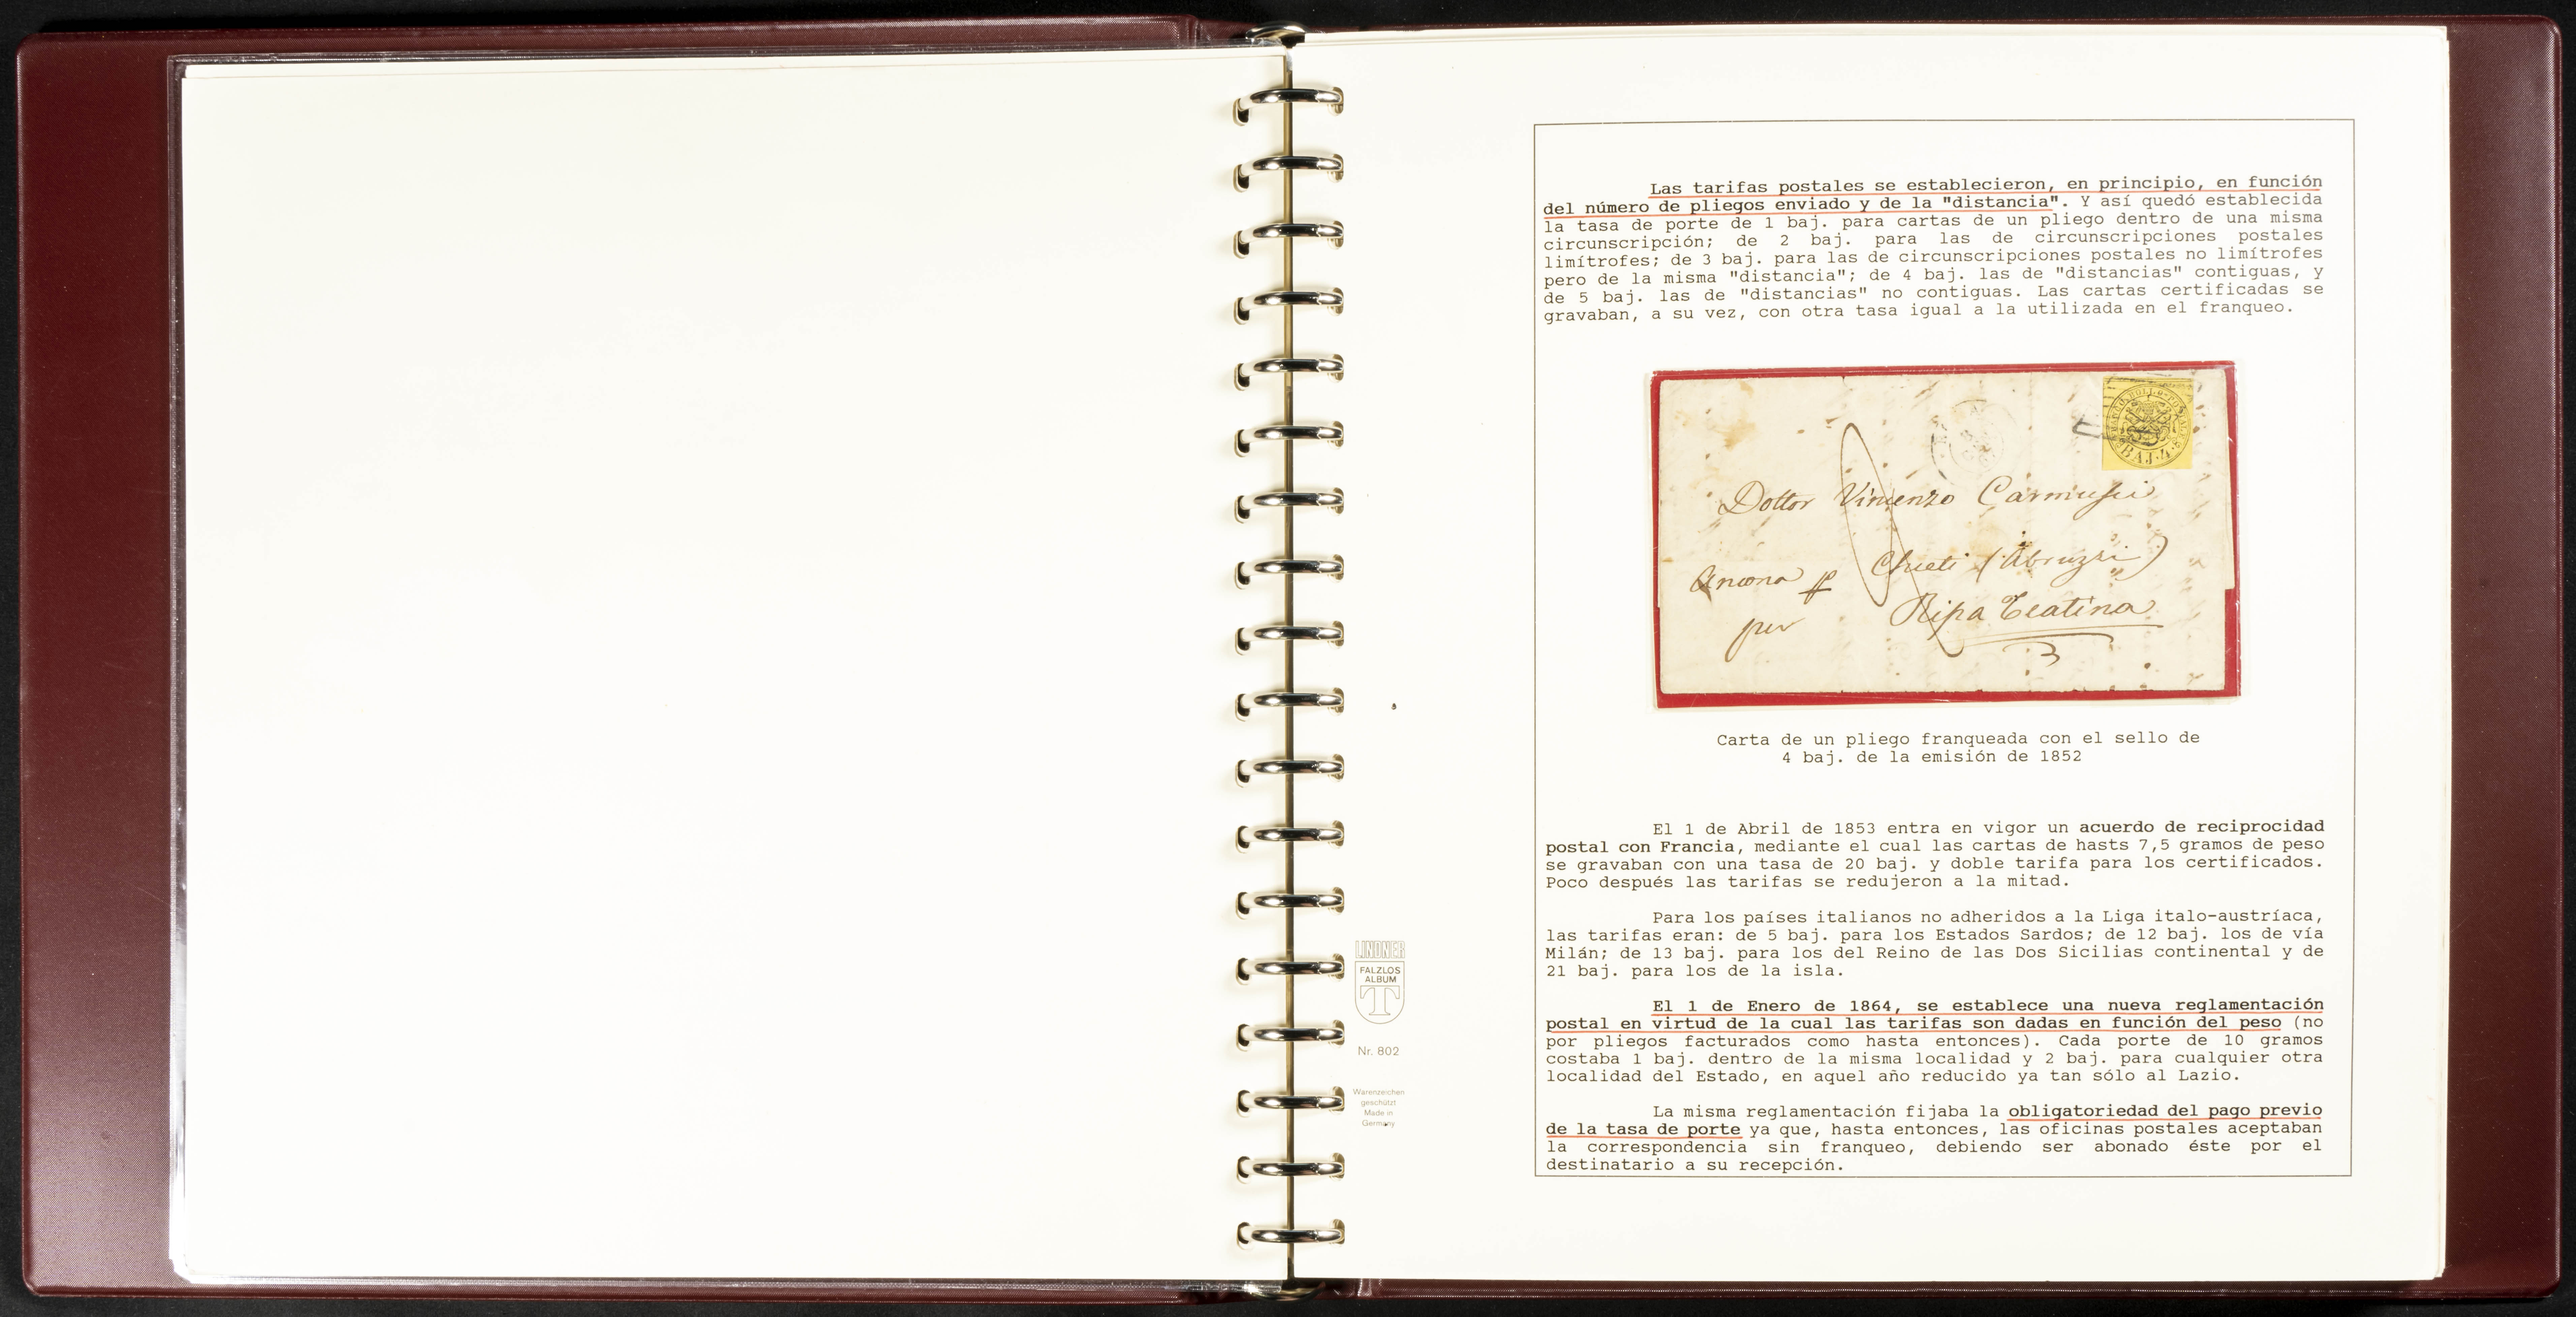 Las tarifas postales se establecieron, en principio, en función
del número de pliegos enviado y de la "distancia". Y así quedó establecida
la tasa de porte de 1 baj. para cartas de un pliego dentro de una misma
circunscripción; de 2 baj. para las de circunscripciones postales
limítrofes; de 3 baj. para las de circunscripciones postales no limítrofes
pero de la misma "distancia"; de 4 baj. las de "distancias" contiguas, y
de 5 baj. las de "distancias" no contiguas. Las cartas certificadas se
gravaban, a su vez, con otra tasa igual a la utilizada en el franqueo.
BAJ. 4.
Dottor Vincenzo
Ancona p Chieti (Abruzzi)
per Ripa Teatina
Carta de un pliego franqueada con el sello de
4 baj. de la emisión de 1852
El 1 de Abril de 1853 entra en vigor un acuerdo de reciprocidad
postal con Francia, mediante el cual las cartas de hasts 7,5 gramos de peso
se gravaban con una tasa de 20 baj. y doble tarifa para los certificados.
Poco después las tarifas se redujeron a la mitad.
Para los países italianos no adheridos a la Liga italo-austríaca,
las tarifas eran: de 5 baj. para los Estados Sardos; de 12 baj. los de vía
Milán; de 13 baj. para los del Reino de las Dos Sicilias continental y de
21 baj. para los de la isla.
El 1 de Enero de 1864, se establece una nueva reglamentación
postal en virtud de la cual las tarifas son dadas en función del peso (no
por pliegos facturados como hasta entonces). Cada porte de 10 gramos
costaba 1 baj. dentro de la misma localidad y 2 baj. para cualquier otra
localidad del Estado, en aquel año reducido ya tan sólo al Lazio.
La misma reglamentación fijaba la obligatoriedad del pago previo
de la tasa de porte ya que, hasta entonces, las oficinas postales aceptaban
la correspondencia sin franqueo, debiendo ser abonado éste por el
destinatario a su recepción.
LINDNER
FALZLOS
ALBUM
T
Nr. 802
Warenzeichen
geschützt
Made in
Germany